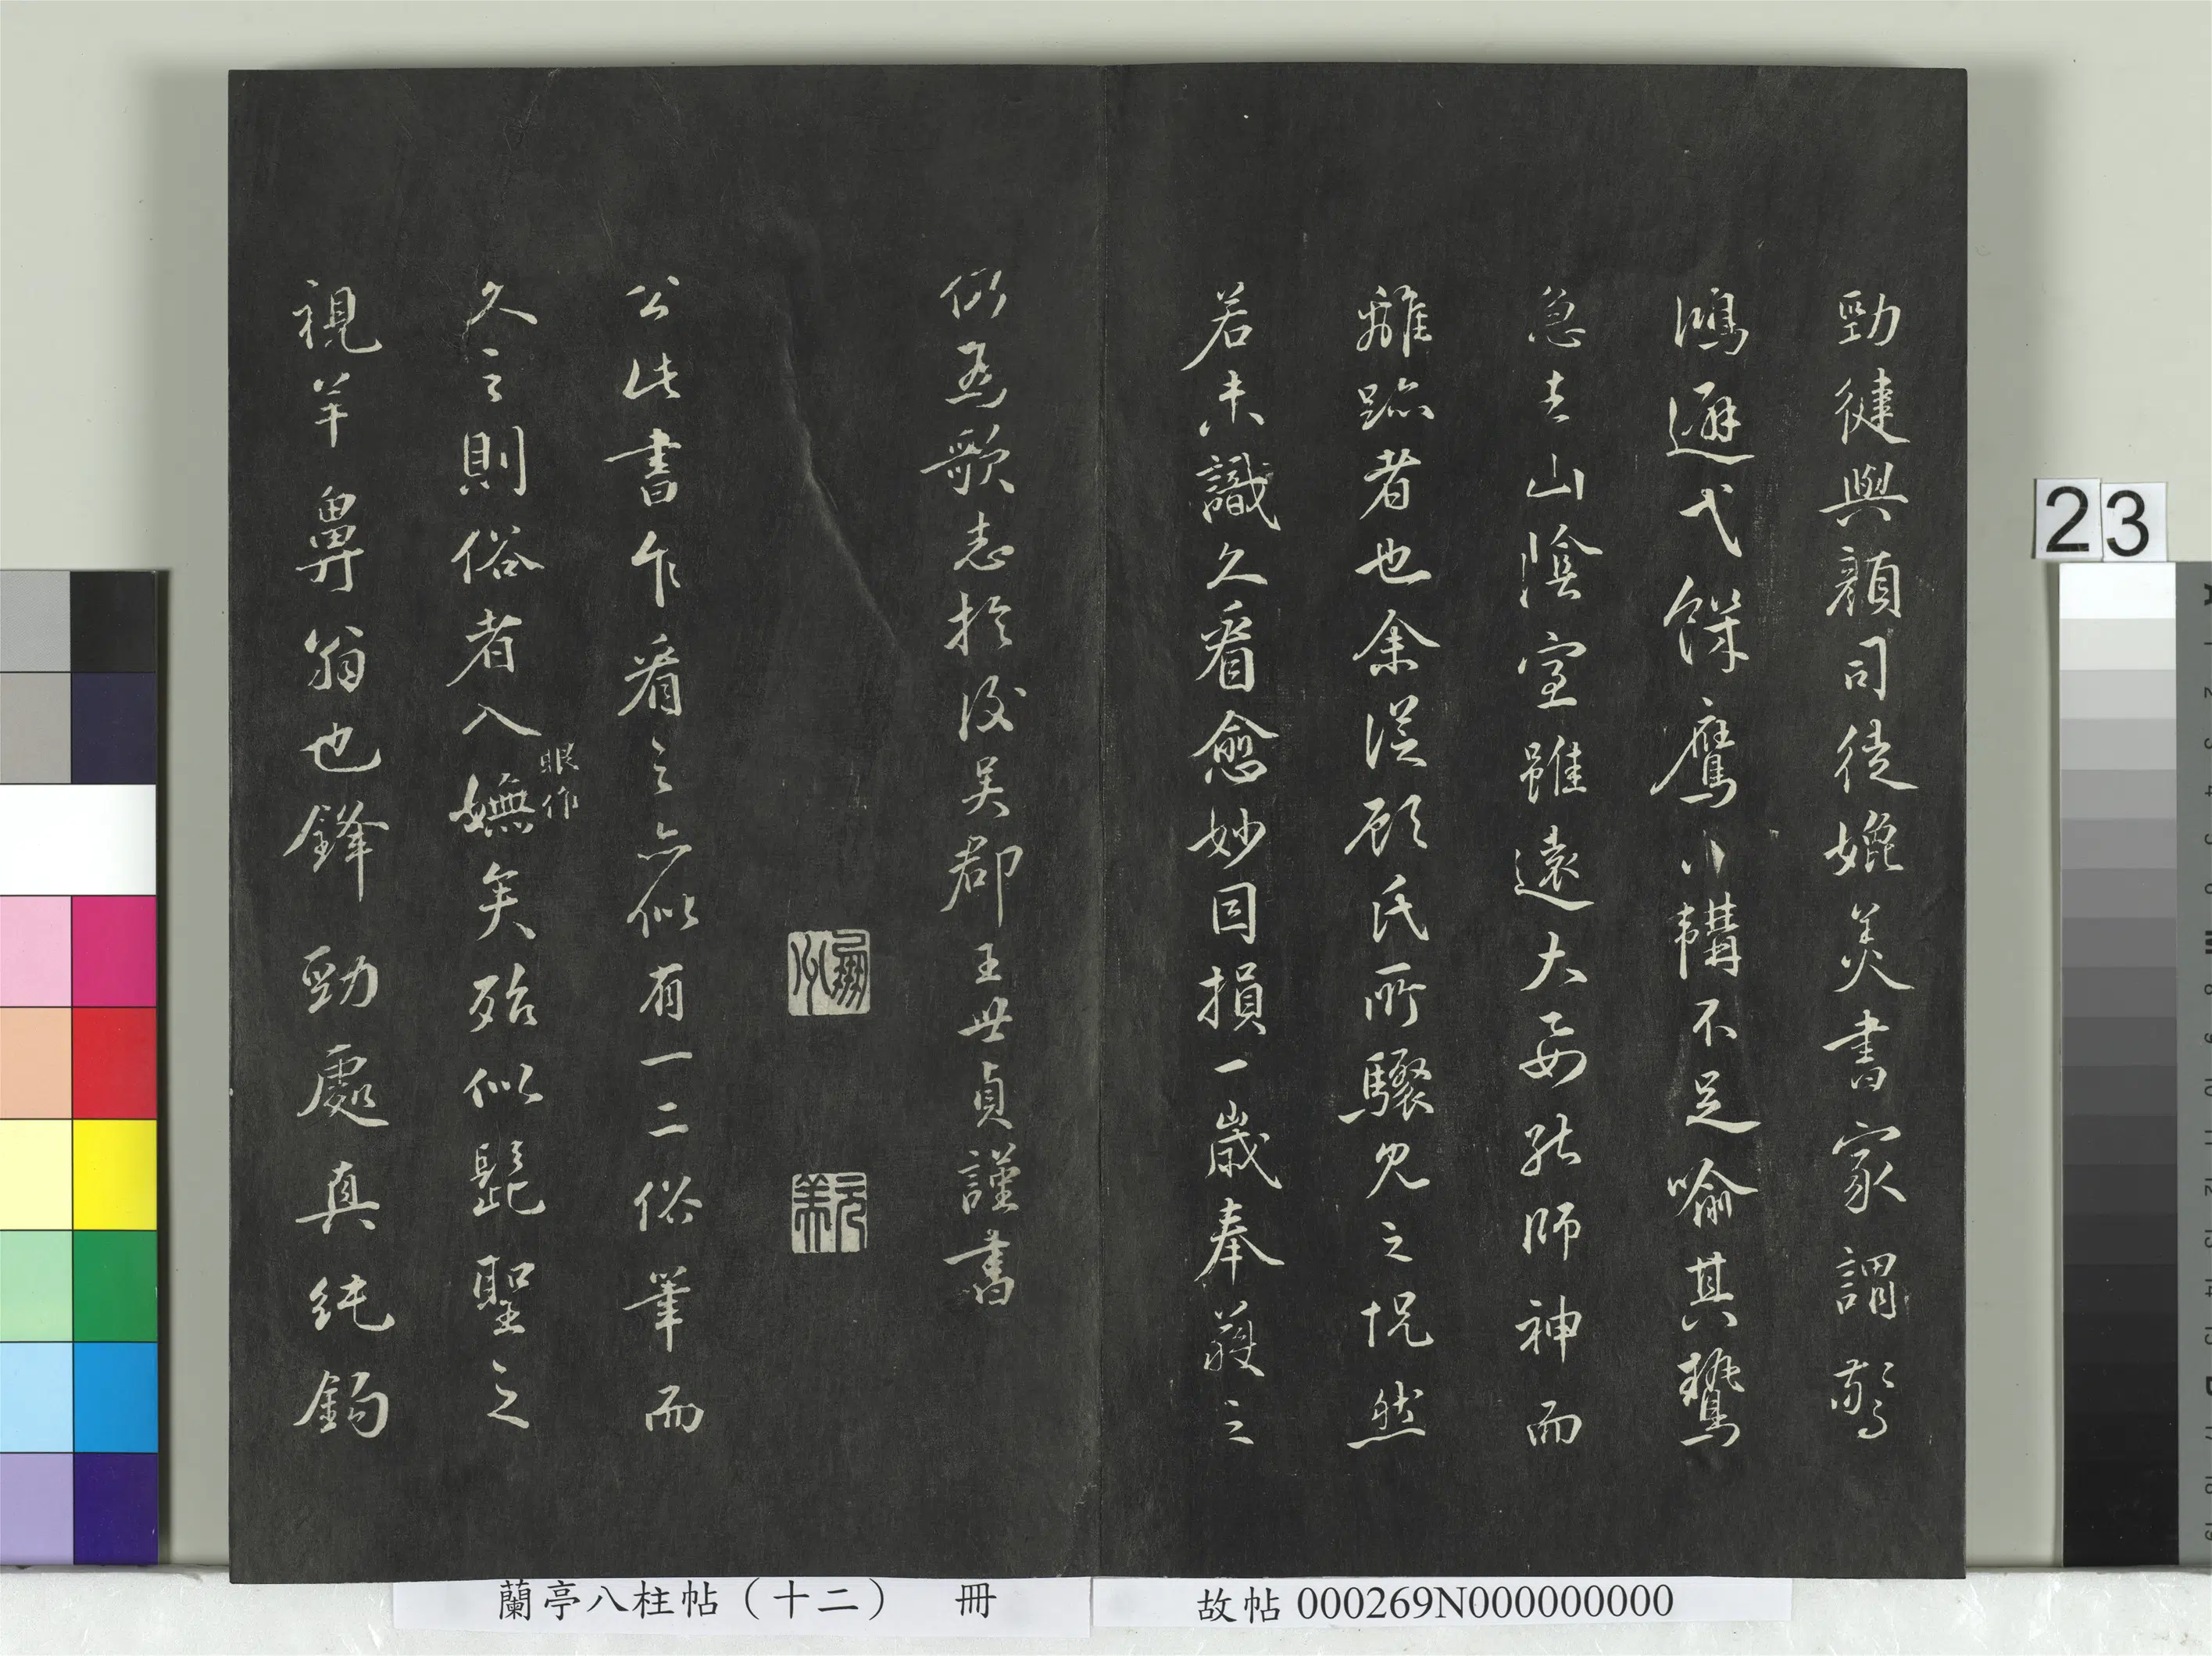 勁健與顏司徒媲美書家謂驚
鴻避弋餓鷹下韝不足喻其鷙
急去山陰室雖遠大要能師神而
離跡者也余從顧氏所驟見之怳然
若未識久看愈妙因損一歲奉獲之
仍為歌志於後吳郡王世貞謹書
公此書乍看之亦似有一二俗筆而
久之則俗者入眼作嫵矣殆似髭聖之
視羊鼻翁也鋒勁處真純鉤
23
蘭亭八柱帖（十二） 冊
故帖 000269N000000000